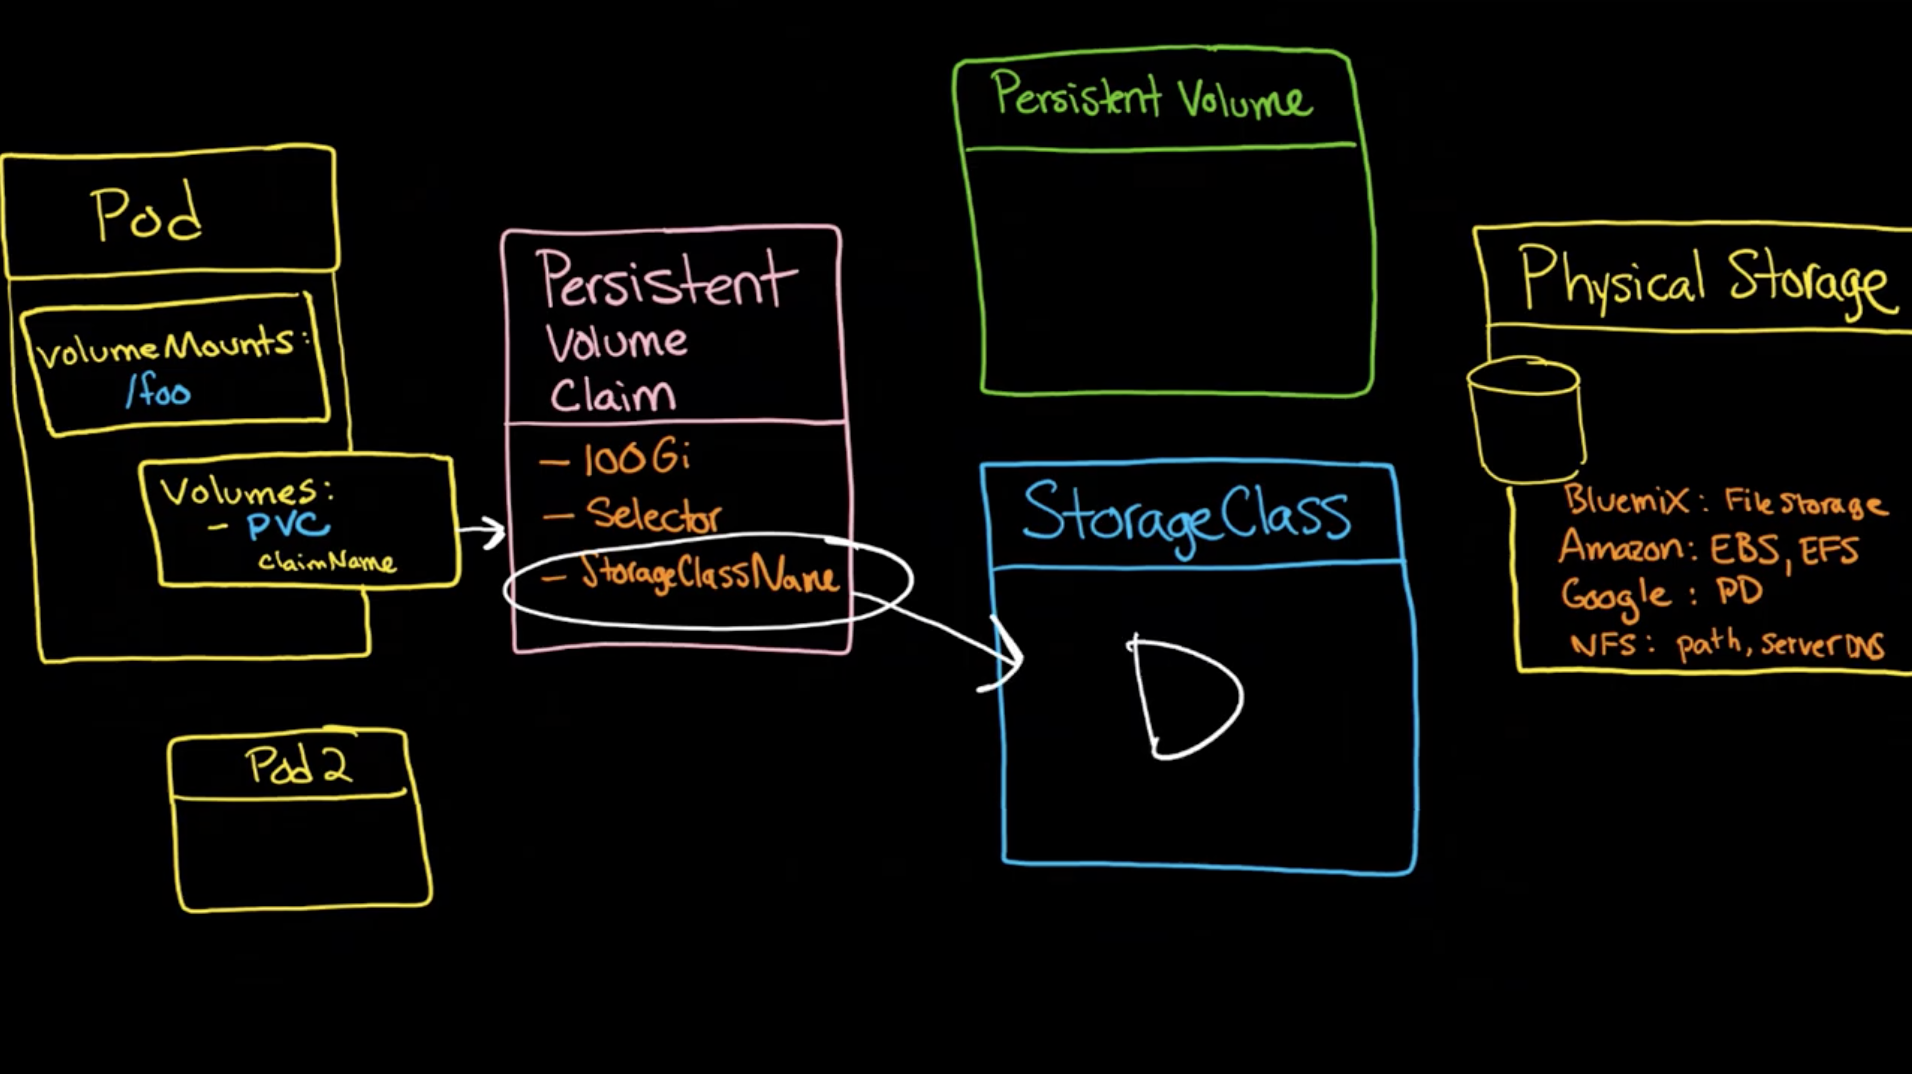 Pod
volumeMounts:
/foo
Volumes:
- PVC
claimName
Pod 2
Persistent
Volume
Claim
- 100Gi
- Selector
- StorageClassName
Persistent Volume
StorageClass
D
Physical Storage
Bluemix: File Storage
Amazon: EBS, EFS
Google: PD
NFS: path, serverDNS